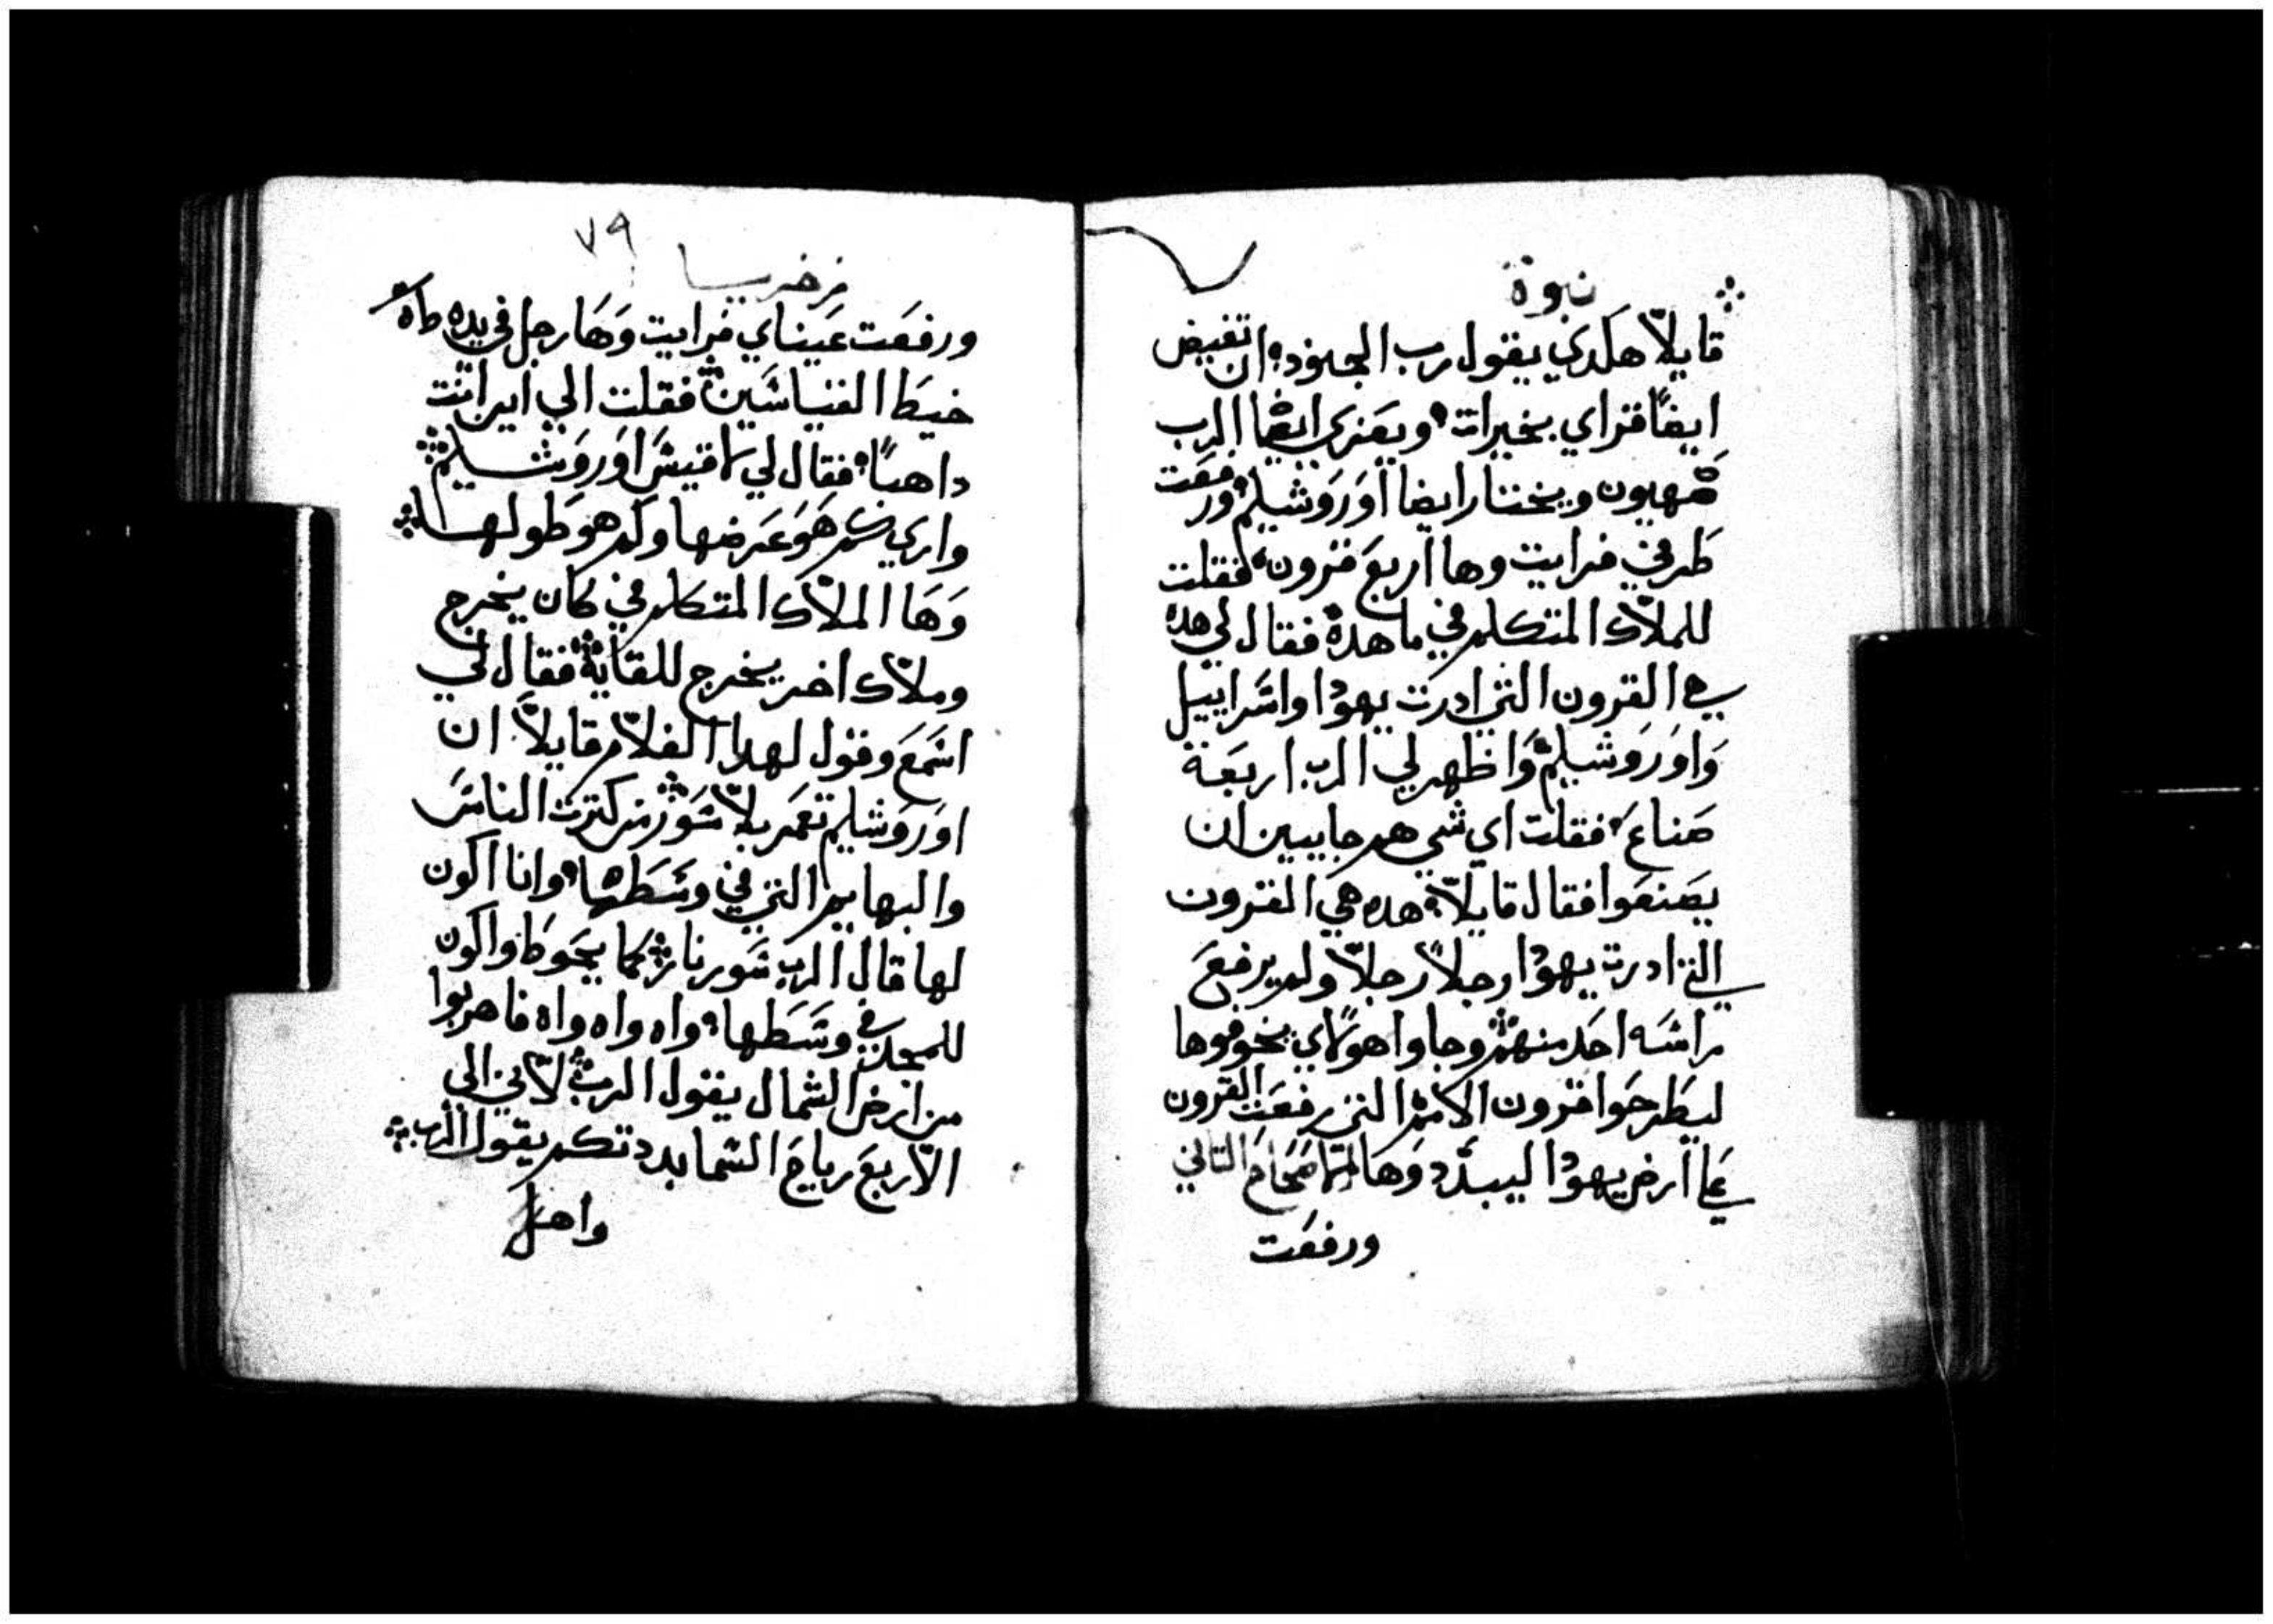 نبوة
قايلاً هكدي يقول رب الجنود ان تفيض
ايضًا قراي بخيرات ويعزي ايضا الرب
صهيون ويختار ايضا اوروشليم ورفعت
طرفي فرايت وها اربع قرون فقلت
للملاك المتكلم في ما هده فقال لي هده
هي القرون التي ادرت يهودا واسراييل
واوروشليم واظهر لي الرب اربعة
صناع فقلت اي شي هم جايين ان
يصنعوا فقال قايلاً هده هي القرون
التي ادرت يهودا رجلاً رجلاً ولم يرفع
راسه احد منهم وجاوا هولاي يخوفوها
ليطرحوا قرون الامم التي رفعت القرون
علي ارض يهودا ليبدد وها الاصحاح التاني
ورفعت
٧٩
زخريا
ورفعت عيناي فرايت وها رجل في يده
خيط القياسين فقلت الي اين انت
داهبًا فقال لي لاقيس اوروشليم
واري كم هو عرضها وكم هو طولها
وها الملاك المتكلم في كان يخرج
وملاك اخر يخرج للقايه فقال لي
اسمع وقول لهدا الغلام قايلاً ان
اوروشليم تعمر بلا سور من كترت الناس
والبهايم التي في وسطها وانا اكون
لها قال الرب سور نار كما يحوط واكون
للمجد في وسطها واه واه واه فاهربوا
من ارض الشمال يقول الرب لاني الي
الاربع رياح السما بددتكم يقول الرب
واهل